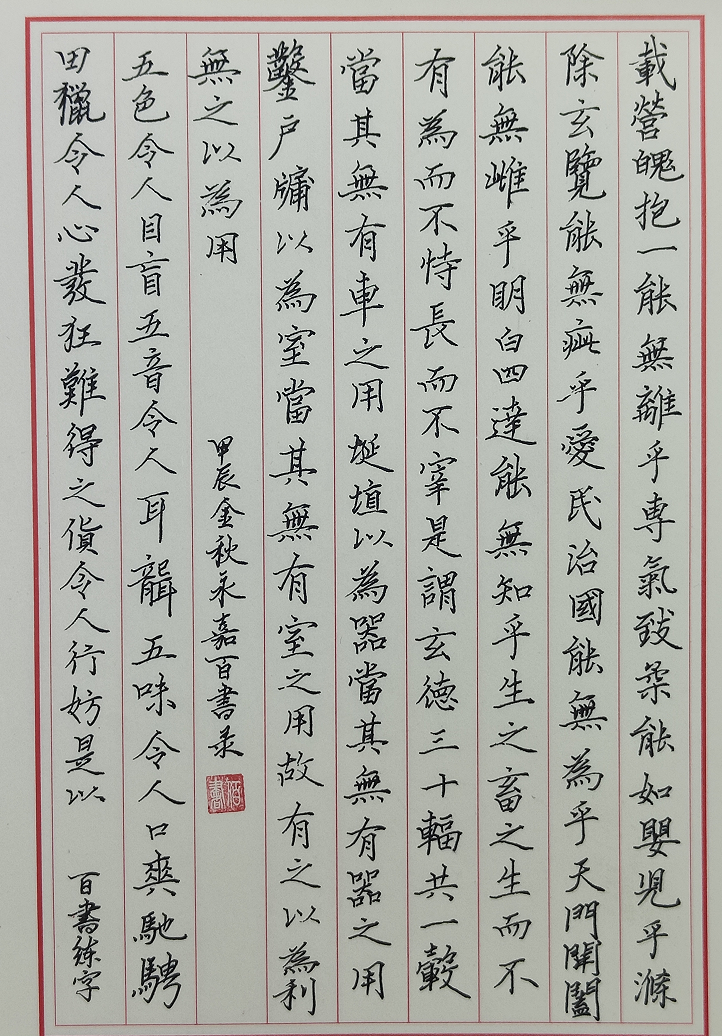 載營魄抱一能無離乎専氣致柔能如嬰児乎滌
除玄覽能無疵乎愛民治國能無為乎天門開闔
能無雌乎明白四達能無知乎生之畜之生而不
有為而不恃長而不宰是謂玄德三十輻共一轂
當其無有車之用埏埴以為器當其無有器之用
鑿户牖以為室當其無有室之用故有之以為利
無之以為用
甲辰金秋永嘉百書录
百書
五色令人目盲五音令人耳聾五味令人口爽馳騁
田獵令人心發狂難得之貨令人行妨是以
百書练字